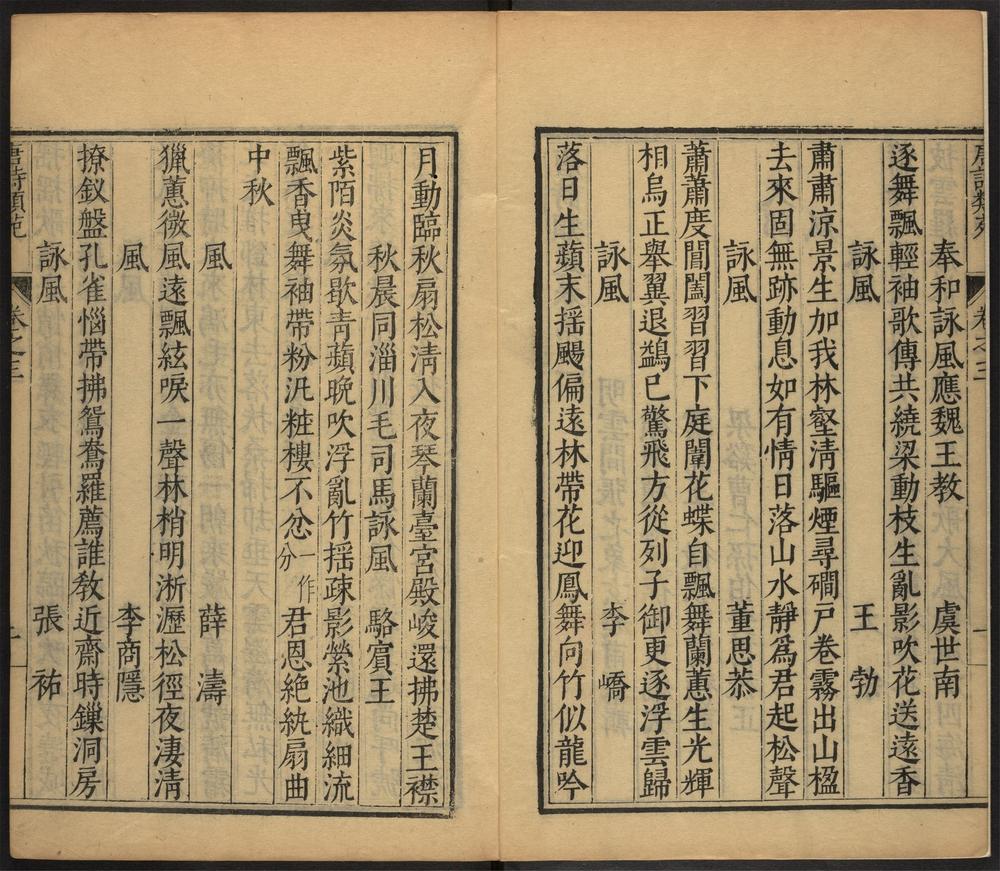 唐詩類苑 卷之三 一
奉和詠風應魏王教 虞世南
逐舞飄輕袖歌傳共繞梁動枝生亂影吹花送遠香
詠風 王勃
肅肅涼景生加我林壑淸驅煙尋磵戸卷霧出山楹
去來固無跡動息如有情日落山水靜爲君起松聲
詠風 董思恭
蕭蕭度閶闔習習下庭闈花蝶自飄舞蘭蕙生光輝
相烏正舉翼退鷁已驚飛方從列子御更逐浮雲歸
詠風 李嶠
落日生蘋末揺颺偏遠林帶花迎鳳舞向竹似龍吟
月動臨秋扇松淸入夜琴蘭臺宮殿峻還拂楚王襟
秋晨同淄川毛司馬詠風 駱賓王
紫陌炎氛歇靑蘋晩吹浮亂竹揺疎影縈池織細流
飄香曳舞袖帶粉汎粧樓不忿一作分君恩絶紈扇曲
中秋
風 薛濤
獵蕙微風遠飄絃唳一聲林梢明淅瀝松徑夜淒淸
風 李商隱
撩釵盤孔雀惱帶拂鴛鴦羅薦誰敎近齋時鏁洞房
詠風 張祐
唐詩類苑 卷之三